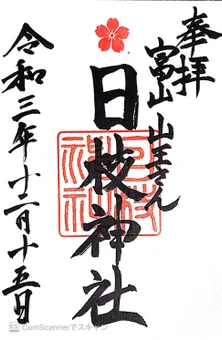 奉拝
富山 山王さん
日枝神社
日枝神社
令和三年十二月十五日
CamScannerでスキャン